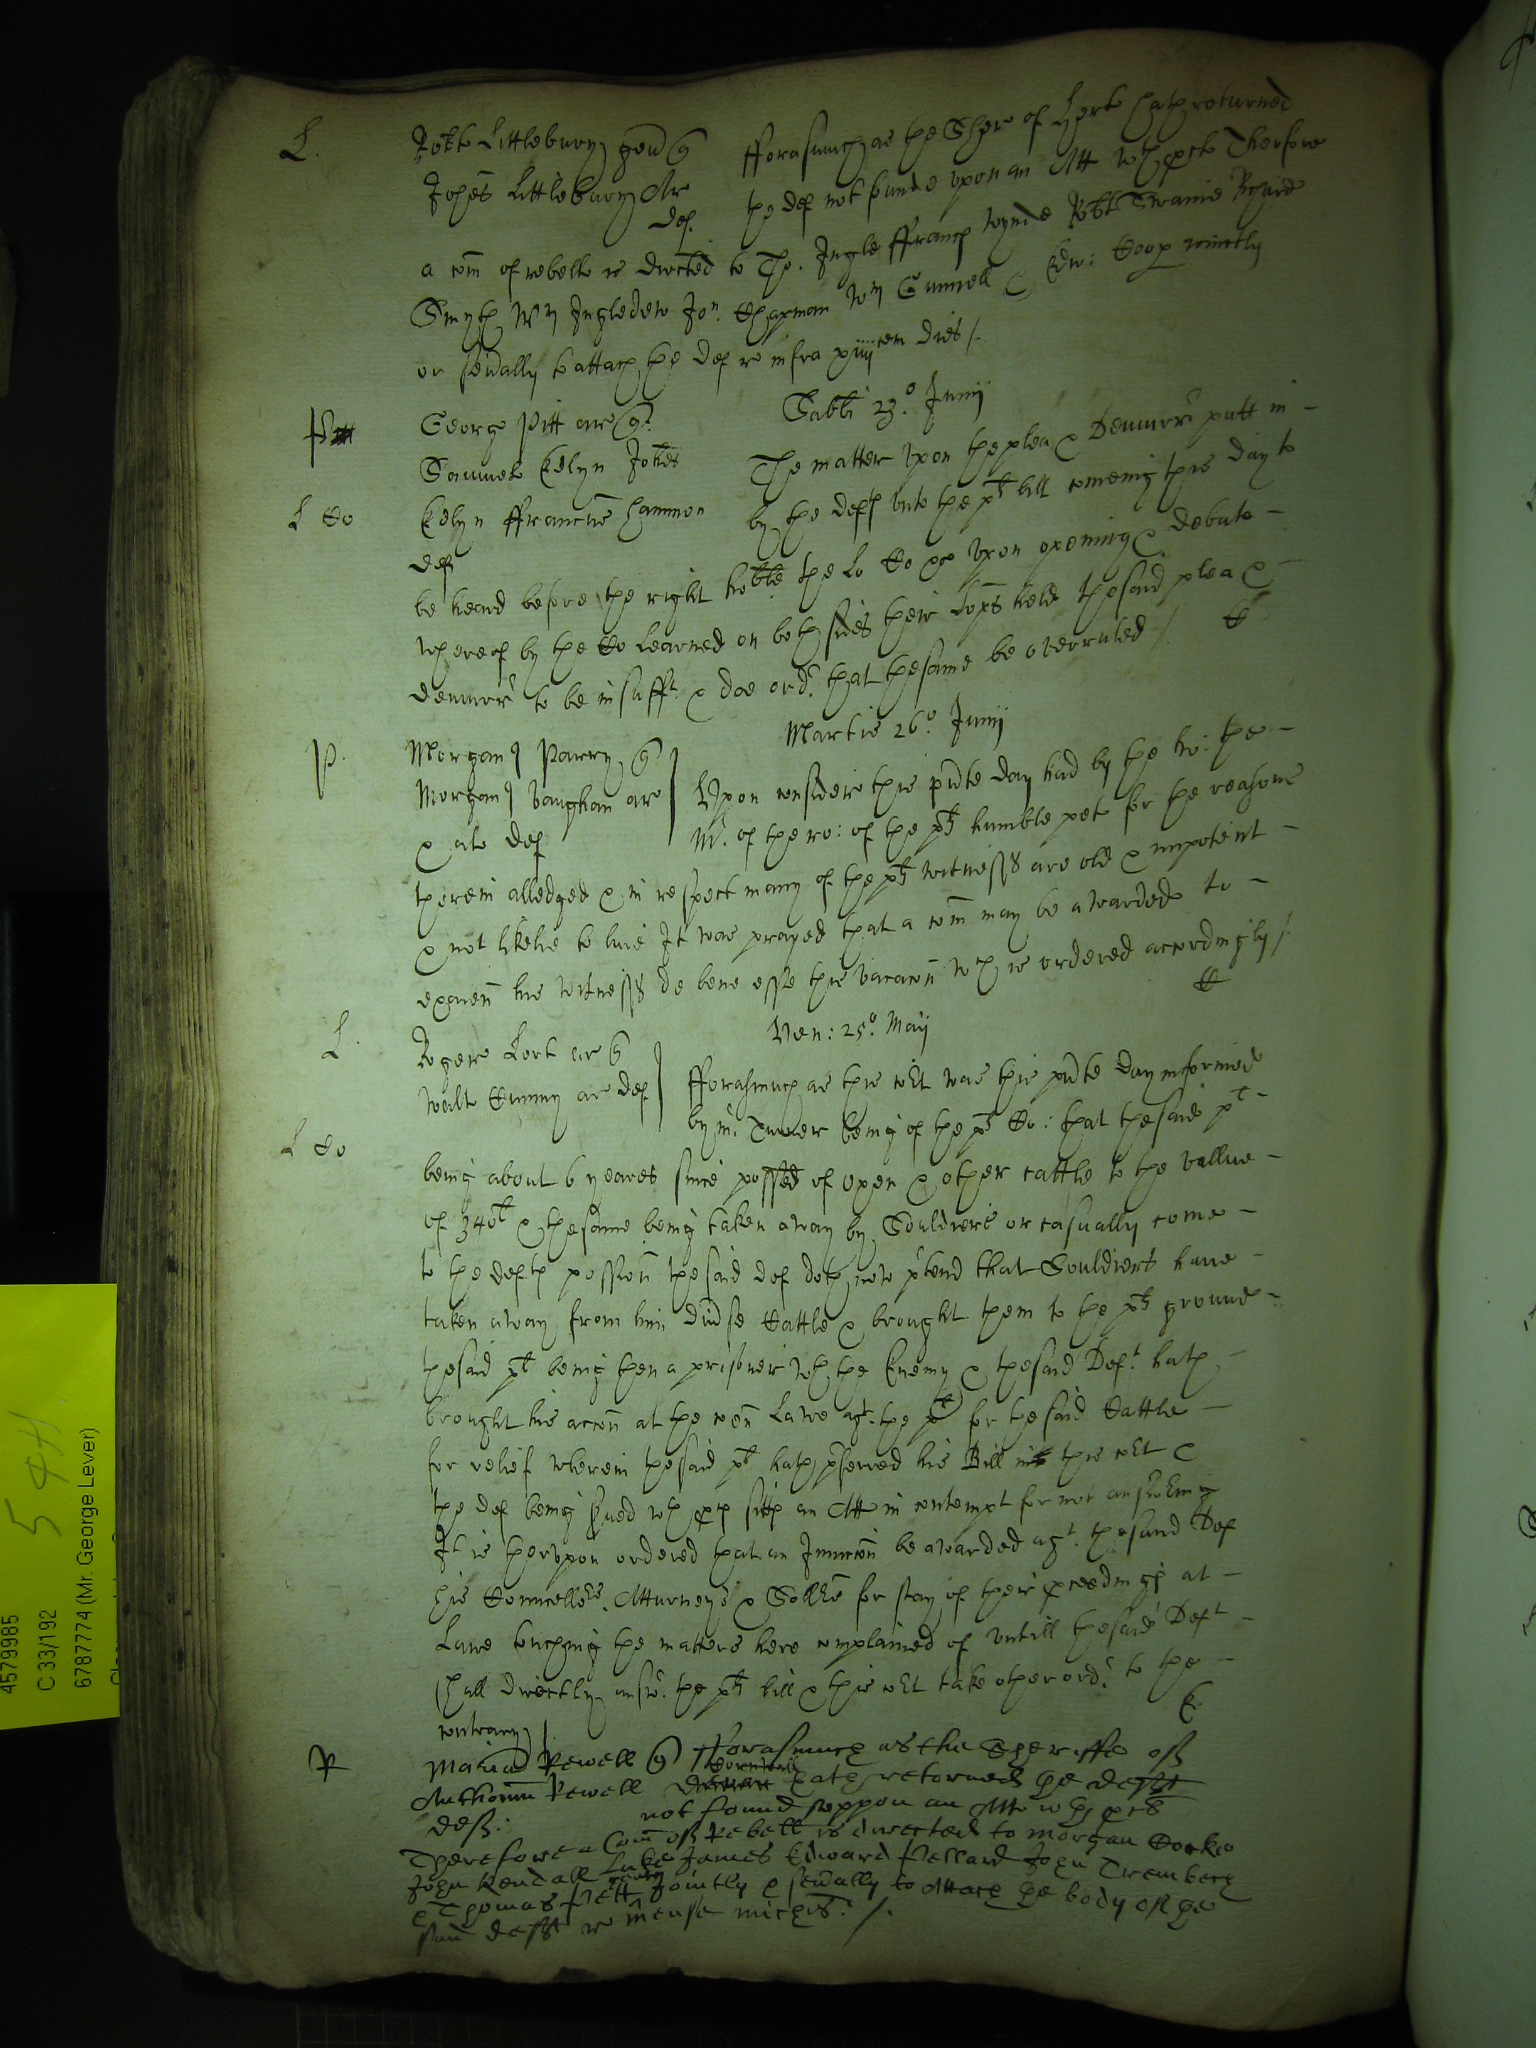 L. Robte Littlebury gen q fforasmuch as the Shere of Herts hath returned
Johes Littlebury Ar the def not funde vpon an Att wth pcts Therfore
def.
a com of rebell is directed to Tho. Ingle ffranc Wynde Robt Swaine Richard
Smyth Wm Ingledew Jon. Chapman Wm Gunnell & Edw: Coop ioinctly
or seually to attach the def re infra xiiij cem dies /.
Sabti 23.o Junij
P George Pitt ar q.
Samuel Kelyn Johes The matter vpon the plea & Demurrr putt in -
L Co Kelyn ffrancis Hammon by the defts vnto the pts bill comeing this day to
def
be heard before the right hoble the Lo Co &c vpon opening & debate -
whereof by the Co learned on both sides their Lopps held the said plea & -
demurrr to be insufft & doe ordr that the same be overruled / C
Martis 26.o Junij
P. Morgan Parry q
Morgan Vaughan ar Vpon considere this pnte day had by the ho: the -
& als def Mr. of the ro: of the pts humble pet for the reasons
therein alledged & in respect many of the pts witnesses are old & impotent -
& not likelie to liue It was prayed that a com may be awarded to -
examen his witnesses de bene esse this vacacon wch is ordered accordingly /.
C
Ven: 25.o Maij
L. Roger Lort ar q
Walt Cunny ar def fforasmuch as this cort was this pnte day informed
by mr. Turner being of the pts Co: that the said plt -
L Co
being about 6 yeares since possed of oxen & other cattle to the vallue -
of 340l & the same being taken away by Souldiers or casually come -
to the defts possion the said def doth now ptend that Souldiers haue -
taken away from him diuse Cattle & brought them to the pts ground -
the said plt being then a prisoner wth the Enemy & the said Deft hath -
brought his accon at the comon Lawe agt. the plt for the said Cattle -
for relief wherein the said plt hath pferred his Bill in this cort &
the def being serued wth pcs sitts an Att in contempt for not answering
It is therevpon ordered that an Iniuncon be awarded agt. the said Def
his Councellrs. Atturneys & Sollrs for stay of their pceedings at -
Lawe touching the matters here complained of vntill the said Deft -
shall directly answr. the pts bill & this cort take other ordr. to the -
contrary / E.
R Maria Rewell q fforasmuch as the Sheriffe off
Cornwall
Anthonium Rewell hath retorned the defft
deff: not found vppon an Att wth pces
Therefore a Com off Rebell is directed to Morgan Cocke
John Kendall Luke James Edward Pellard John Trembeth
& Thomas Pett Jointly & seually to Attach the body off the
said defft re mense michis: /.
5 4H.
4579985
C 33/192
6787774 (Mr. George Lever)